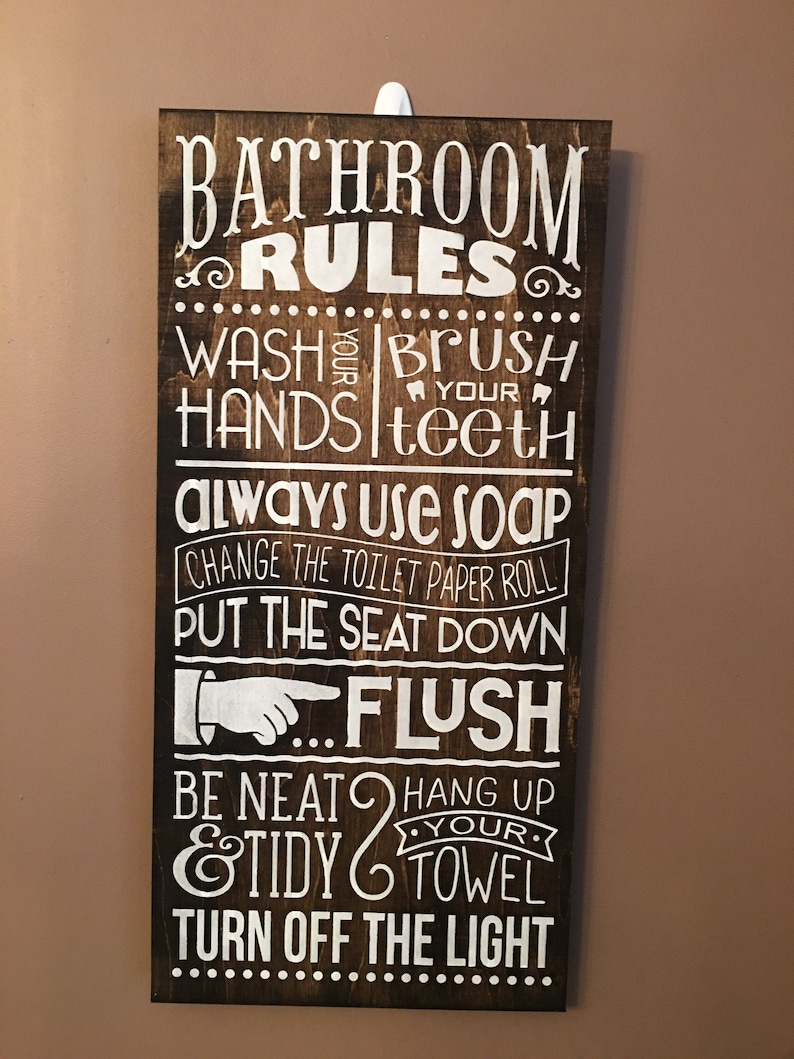 BATHROOM
RULES
WASH YOUR
HANDS
BRUSH
YOUR
teetH
ALWAYS USE SOAP
CHANGE THE TOILET PAPER ROLL
PUT THE SEAT DOWN
...FLUSH
BE NEAT
& TIDY
HANG UP
YOUR
TOWEL
TURN OFF THE LIGHT